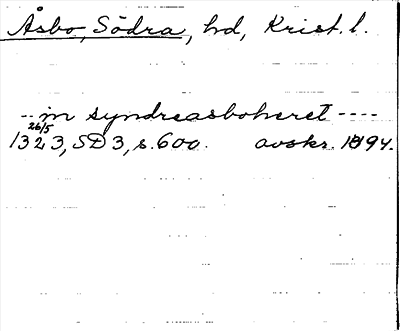 Åsbo, Södra, hd, Krist. l.
-- in syndreasboheret ----
26/5
1323, SD 3, s. 600. avskr. 1494.